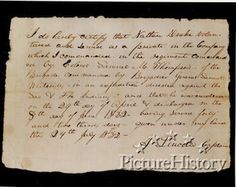 I do hereby certify that Nathan Drake volun-
teered and served as a private in the Company
which I commanded in the regiment commanded
by Colonel Samuel M. Thompson of the
Brigade commanded by Brigadier General Samuel
Whiteside in an expedition directed against the
Sac & Fox Indians and that he was enrolled
on the 29th day of April & discharged on the
8th day of June 1832 having served forty
and three days given under my hand
this 29th July 1832
A. Lincoln Captain
PictureHistory